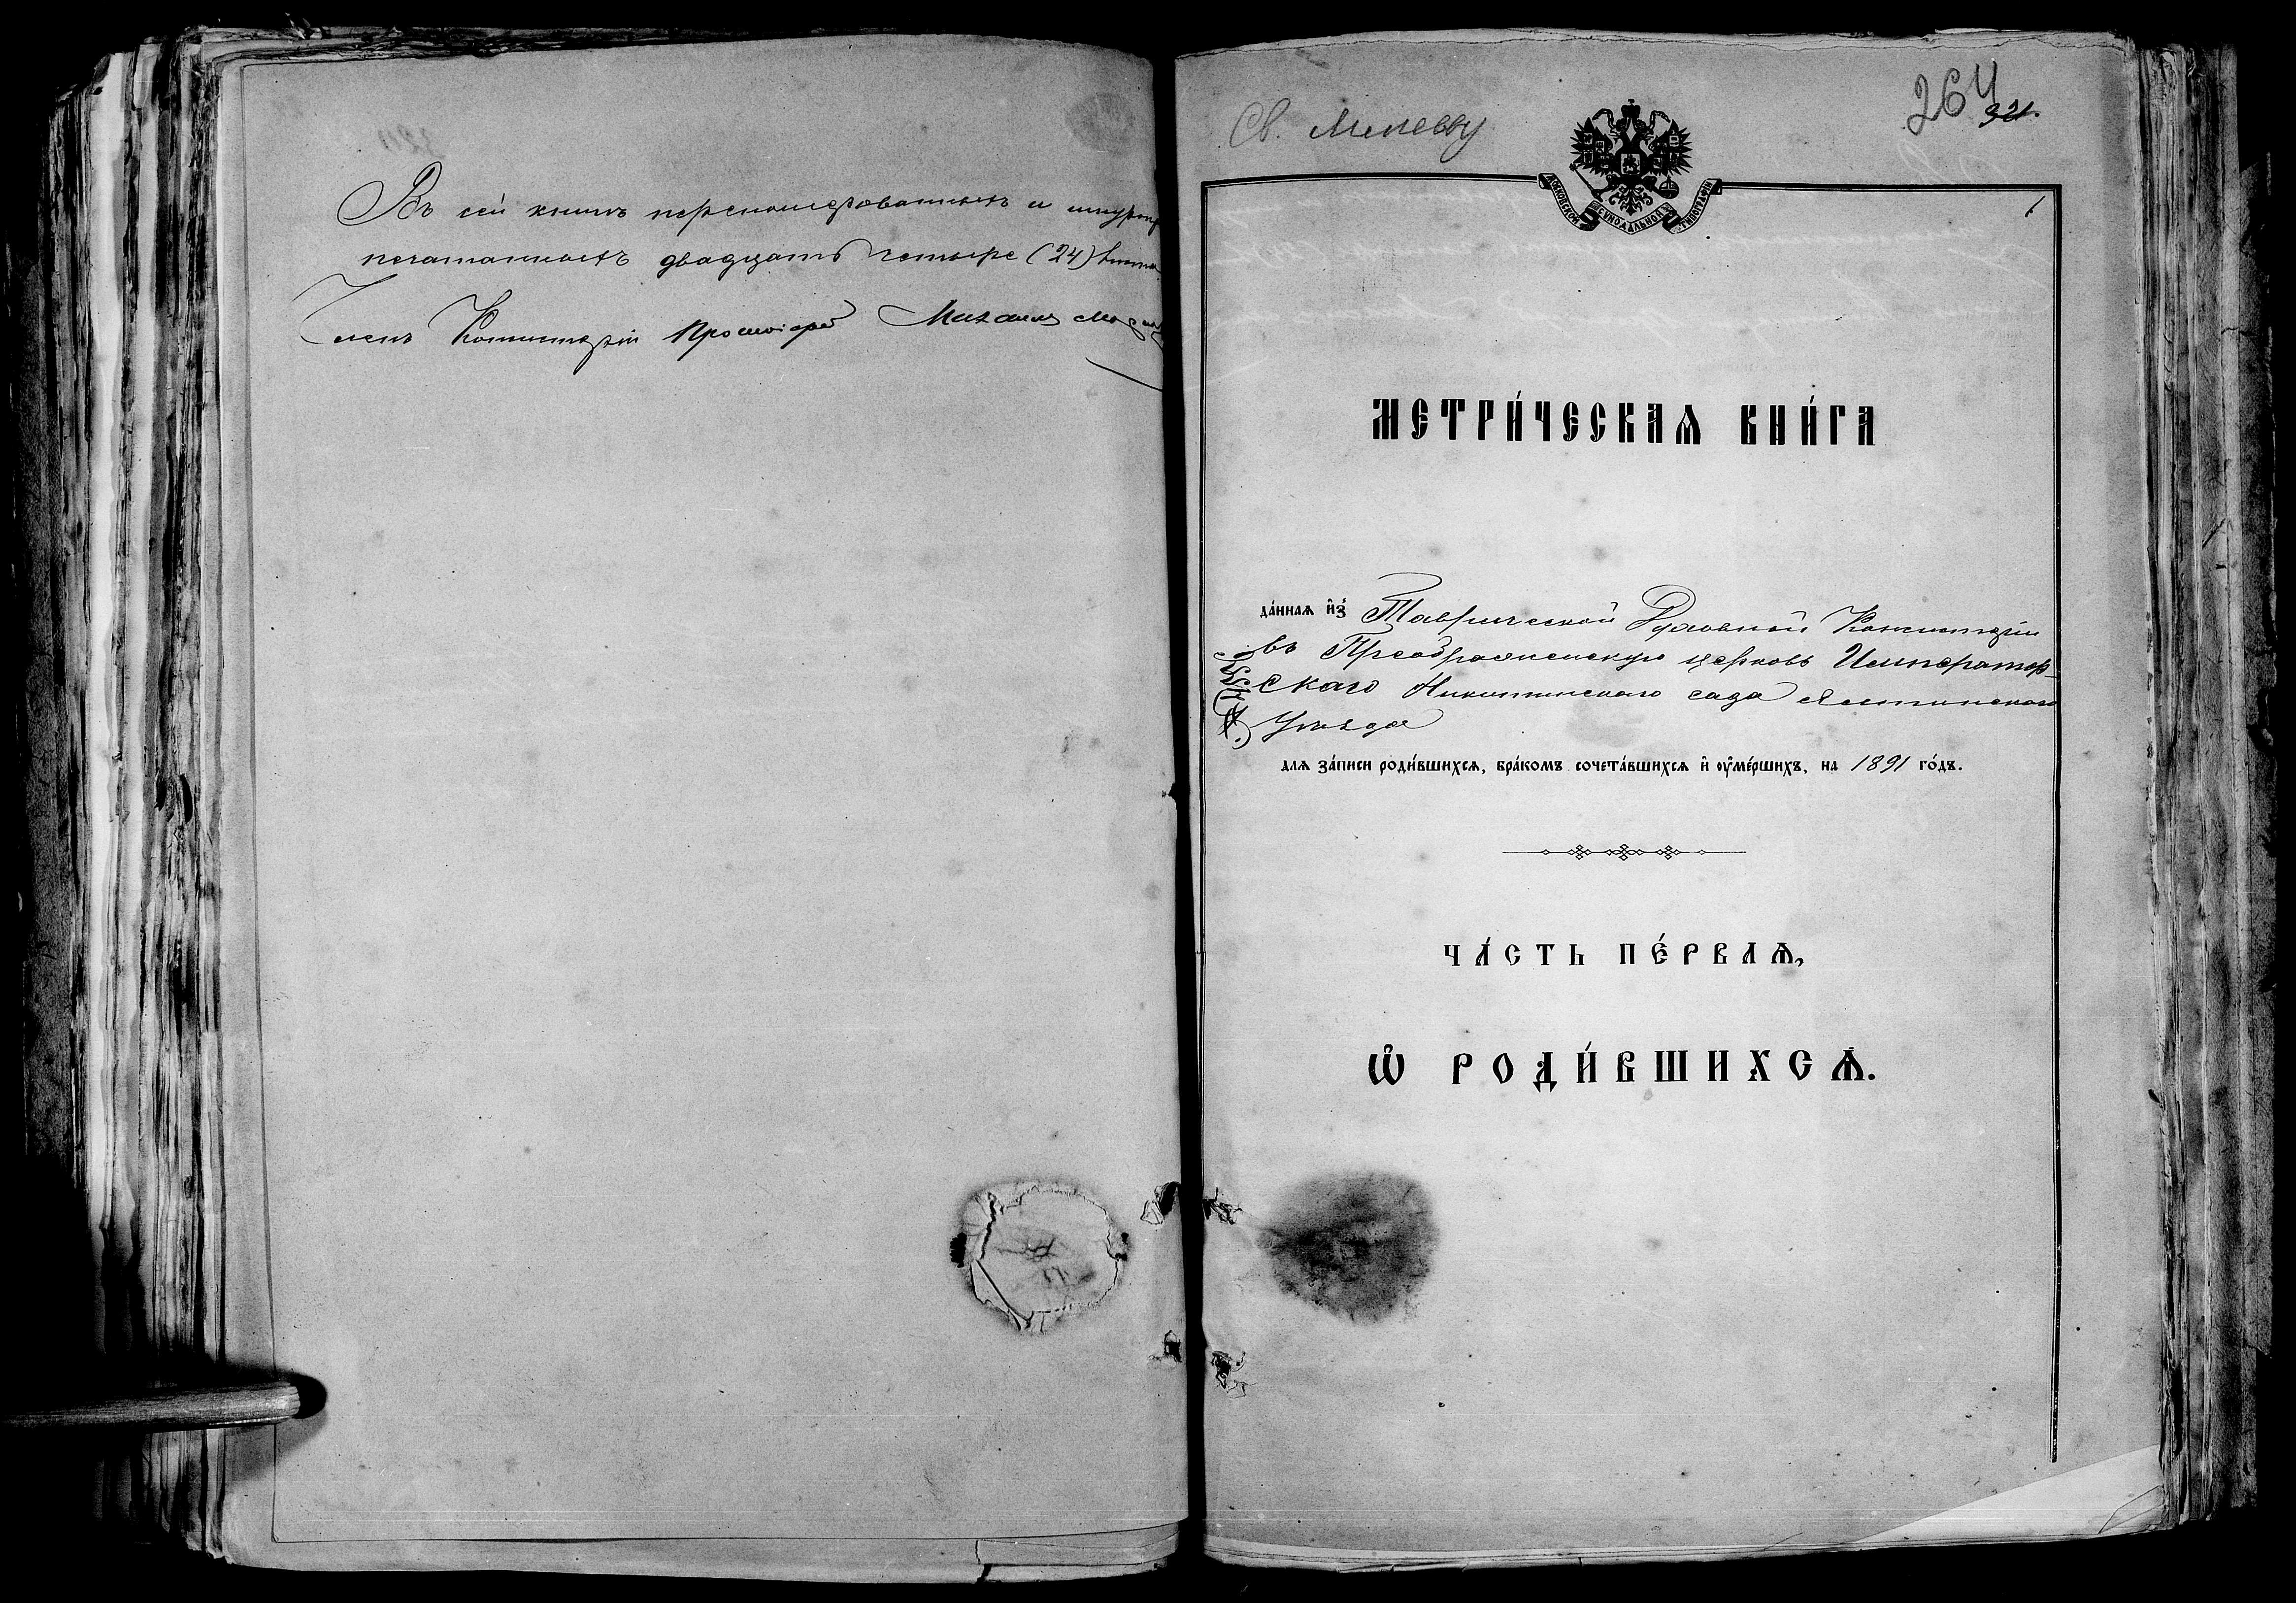 Въ сей книгѣ перенумерованныхъ и шнуро
печатанныхъ двадцать четыре (24) листа
Членъ Консисторіи Протоіерей Михаилъ
Св.
264
321.
1
МОСКОВСКОЙ СѴНОДАЛЬНОЙ ТИПОГРАФІИ
МЕТРИ́ЧЕСКАѦ КНИ́ГА
да́ннаѧ и҆з̾ Таврической Духовной Консисторіи
въ Преображенскую церковь Император-
скаго Никитинскаго сада Ялтинскаго
Уѣзда
для за́писи роди́вшихсѧ, бра́комъ сочета́вшихсѧ и҆ ᲂу҆ме́ршихъ, на 1891 го́дъ.
ЧА́СТЬ ПЕ́РВАѦ,
Ѡ҆ РОДИ́ВШИХСѦ.